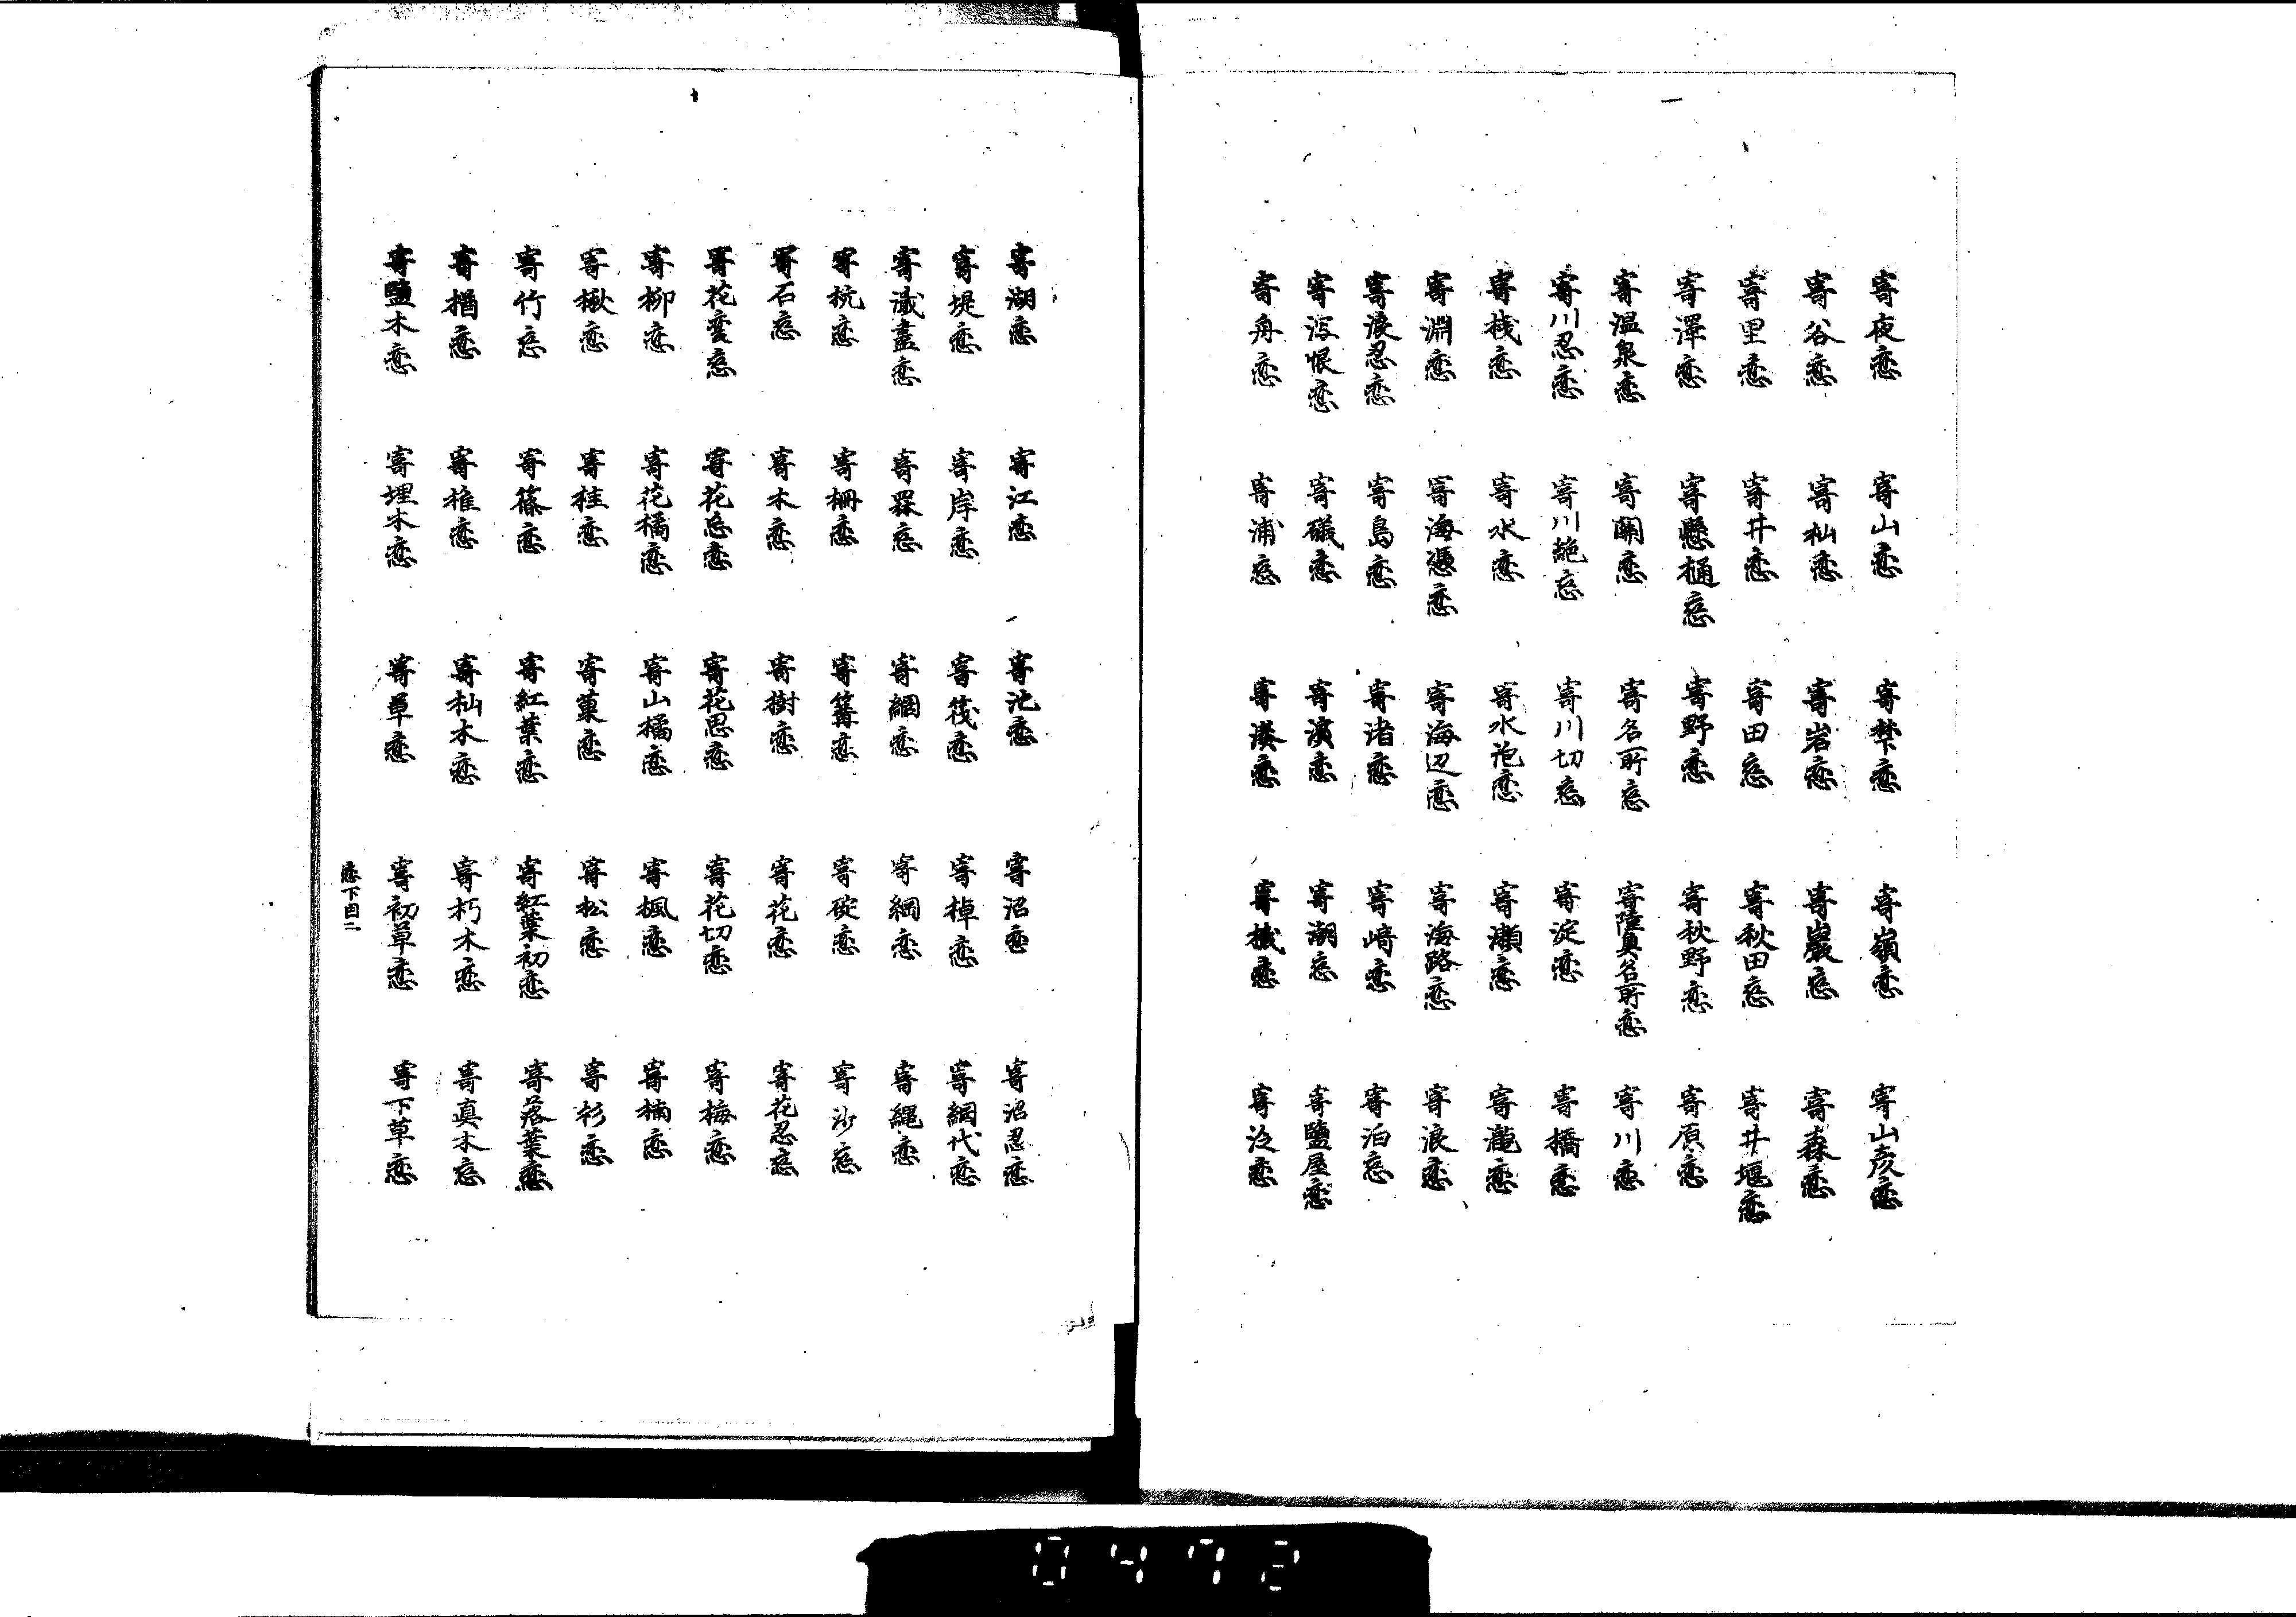 寄夜恋　寄山恋　寄梺恋　寄嶺恋　寄山彦恋
寄谷恋　寄杣恋　寄岩恋　寄巖恋　寄森恋
寄里恋　寄井恋　寄田恋　寄秋田恋　寄井堰恋
寄澤恋　寄懸樋恋　寄野恋　寄秋野恋　寄原恋
寄温泉恋　寄關恋　寄名所恋　寄陸奥名所恋　寄川恋
寄川忍恋　寄川絶恋　寄川切恋　寄淀恋　寄橋恋
寄桟恋　寄水恋　寄水泡恋　寄瀬恋　寄瀧恋
寄淵恋　寄海憑恋　寄海辺恋　寄海路恋　寄浪恋
寄浪忍恋　寄島恋　寄渚恋　寄﨑恋　寄泊恋
寄泻恨恋　寄磯恋　寄濱恋　寄潮恋　寄鹽屋恋
寄舟恋　寄浦恋　寄湊恋　寄楫恋　寄泛恋
寄湖恋　寄江恋　寄池恋　寄沼恋　寄沼忍恋
寄堤恋　寄岸恋　寄筏恋　寄棹恋　寄網代恋
寄澪盡恋　寄罧恋　寄網恋　寄綱恋　寄縄恋
寄杭恋　寄柵恋　寄篝恋　寄碇恋　寄沙恋
寄石恋　寄木恋　寄樹恋　寄花恋　寄花忍恋
寄花変恋　寄花忘恋　寄花思恋　寄花切恋　寄梅恋
寄柳恋　寄花橘恋　寄山橘恋　寄楓恋　寄楠恋
寄楸恋　寄桂恋　寄菓恋　寄松恋　寄杉恋
寄竹恋　寄篠恋　寄紅葉恋　寄紅葉初恋　寄落葉恋
寄楢恋　寄椎恋　寄杣木恋　寄朽木恋　寄真木恋
寄鹽木恋　寄埋木恋　寄草恋　寄初草恋　寄下草恋
恋下目二
0472